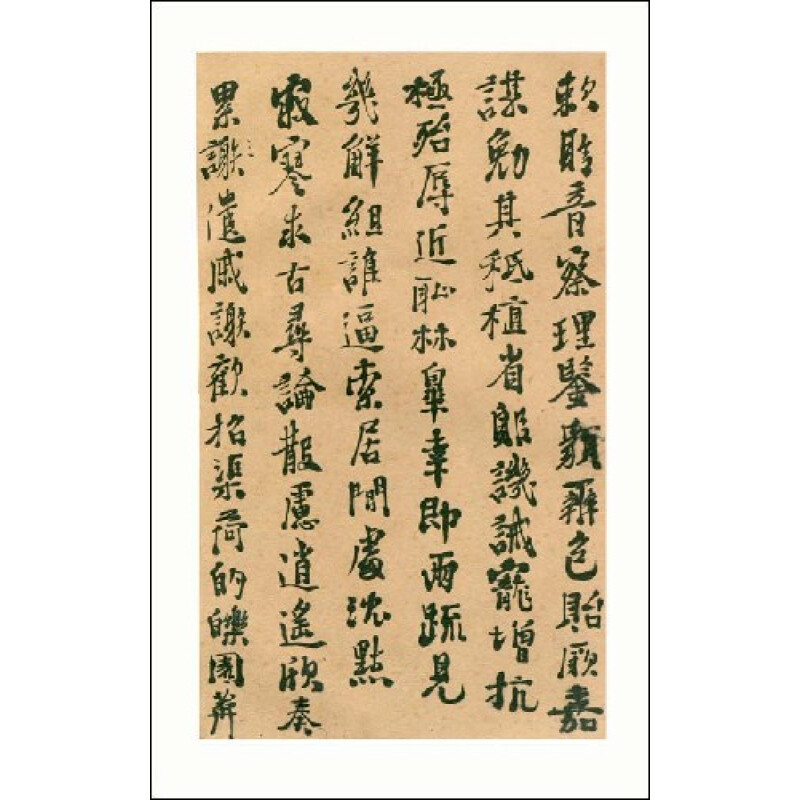 敕聆音察理鑒貌辨色貽厥嘉
謀勉其祗植省躳譏誡寵增抗
極殆辱近恥林皋幸即兩疏見
幾解組誰逼索居閒處沈默
寂寥求古尋論散慮逍遙欣奏
累謝遣戚謝歡招渠荷的皪園莽